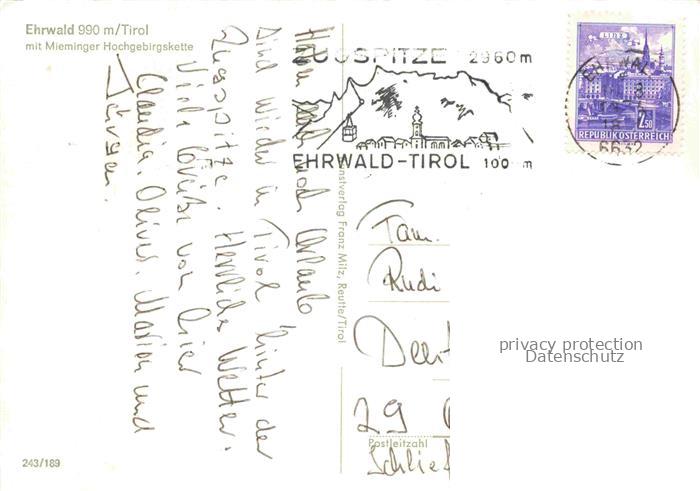 Ehrwald 990 m/Tirol
mit Mieminger Hochgebirgskette
ZUGSPITZE 2960m
EHRWALD-TIROL 100 m
LINZ
2.50
REPUBLIK ÖSTERREICH
6632
Urlaub
Sind wieder in Tirol hinter der
Zugspitze. Herrliches Wetter.
Viele Grüße von hier
Claudia, Oliver, Marion und
Jürgen.
Kunstverlag Franz Milz, Reutte/Tirol
Fam.
Rudi
29
Postleitzahl
Schlief
privacy protection
Datenschutz
243/189